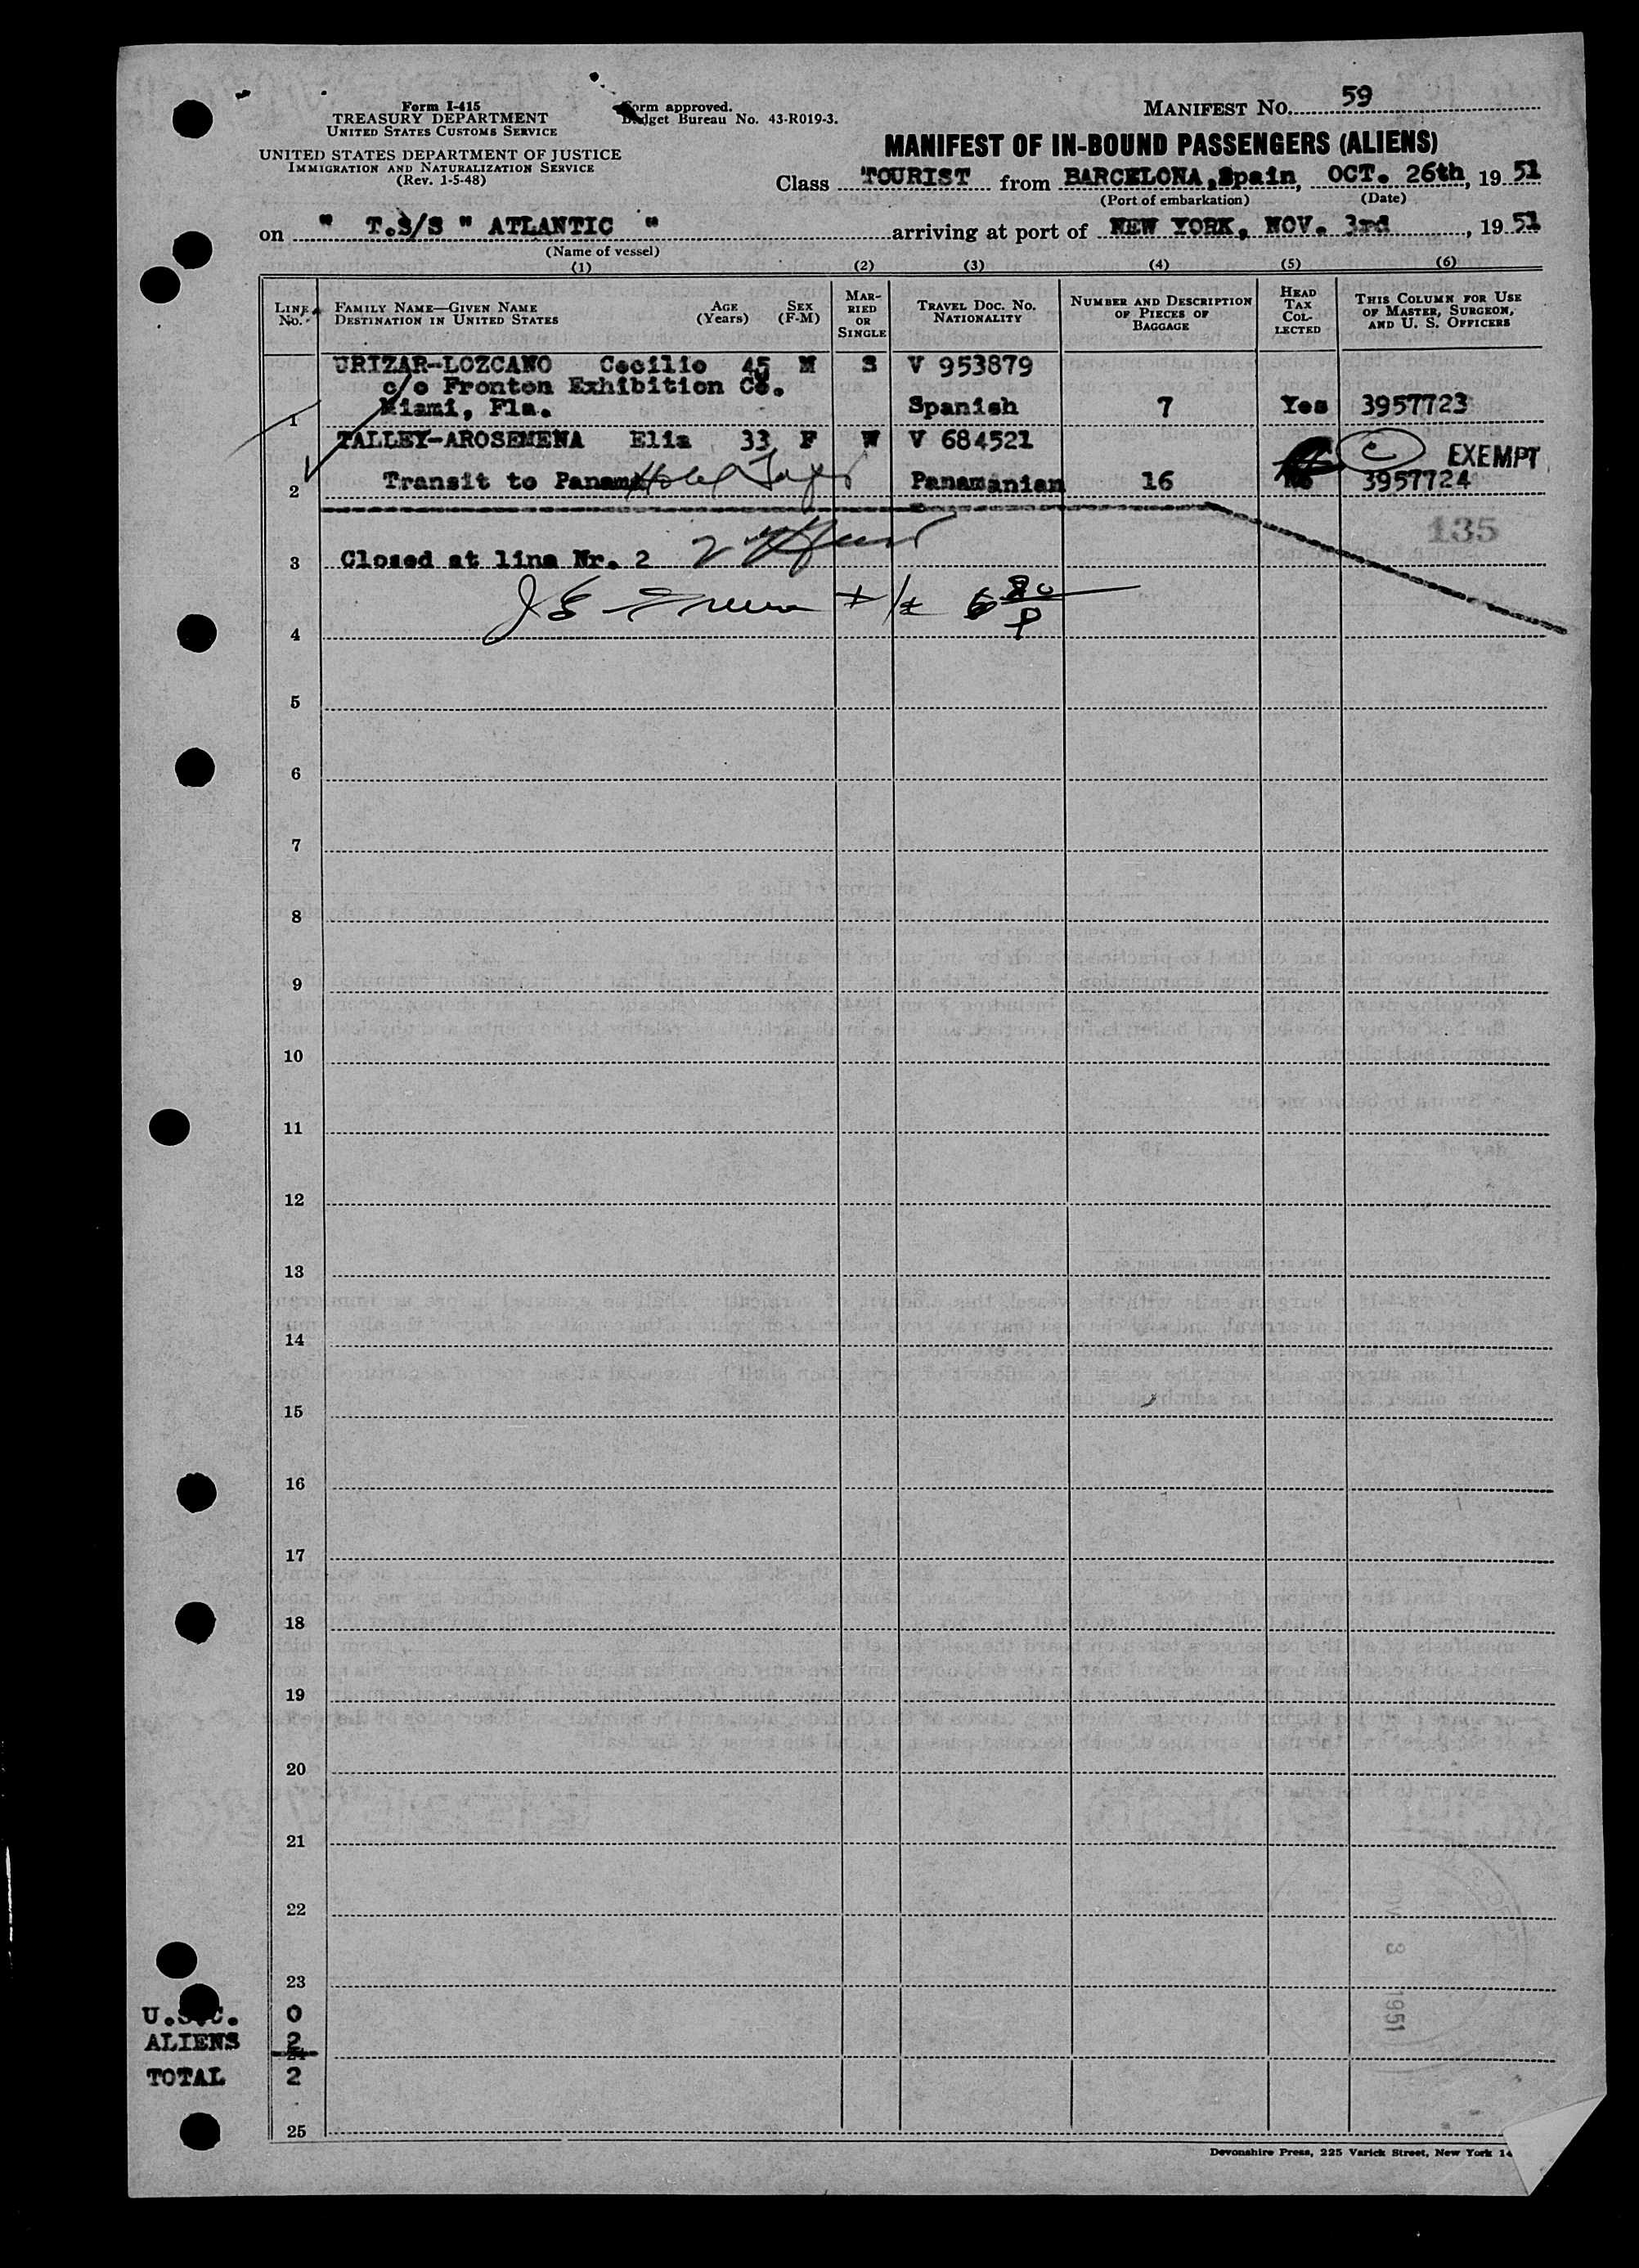 Form I-415
TREASURY DEPARTMENT
UNITED STATES CUSTOMS SERVICE
UNITED STATES DEPARTMENT OF JUSTICE
IMMIGRATION AND NATURALIZATION SERVICE
(Rev. 1-5-48)
Form approved.
Budget Bureau No. 43-R019-3.
MANIFEST No. 59
MANIFEST OF IN-BOUND PASSENGERS (ALIENS)
Class TOURIST from BARCELONA, Spain, OCT. 26th, 19 51
(Port of embarkation) (Date)
on " T.S/S " ATLANTIC " arriving at port of NEW YORK, NOV. 3rd, 19 51
(Name of vessel)
(1) (2) (3) (4) (5) (6)
LINE No. FAMILY NAME—GIVEN NAME DESTINATION IN UNITED STATES AGE (Years) SEX (F-M) MARRIED OR SINGLE TRAVEL DOC. NO. NATIONALITY NUMBER AND DESCRIPTION OF PIECES OF BAGGAGE HEAD TAX COLLECTED THIS COLUMN FOR USE OF MASTER, SURGEON, AND U. S. OFFICERS
URIZAR-LOZCANO Cecilio 45 M S V 953879
c/o Fronton Exhibition Co.
1 Miami, Fla. Spanish 7 Yes 3957723
TALLEY-AROSEMENA Elia 33 F W V 684521 C EXEMPT
2 Transit to Panama Hotel Panamanian 16 No 3957724
135
3 Closed at line Nr. 2
4
5
6
7
8
9
10
11
12
13
14
15
16
17
18
19
20
21
22
23
U.S.C. 0
ALIENS 2
24
TOTAL 2
25
NOV 3 1951
Devonshire Press, 225 Varick Street, New York 14